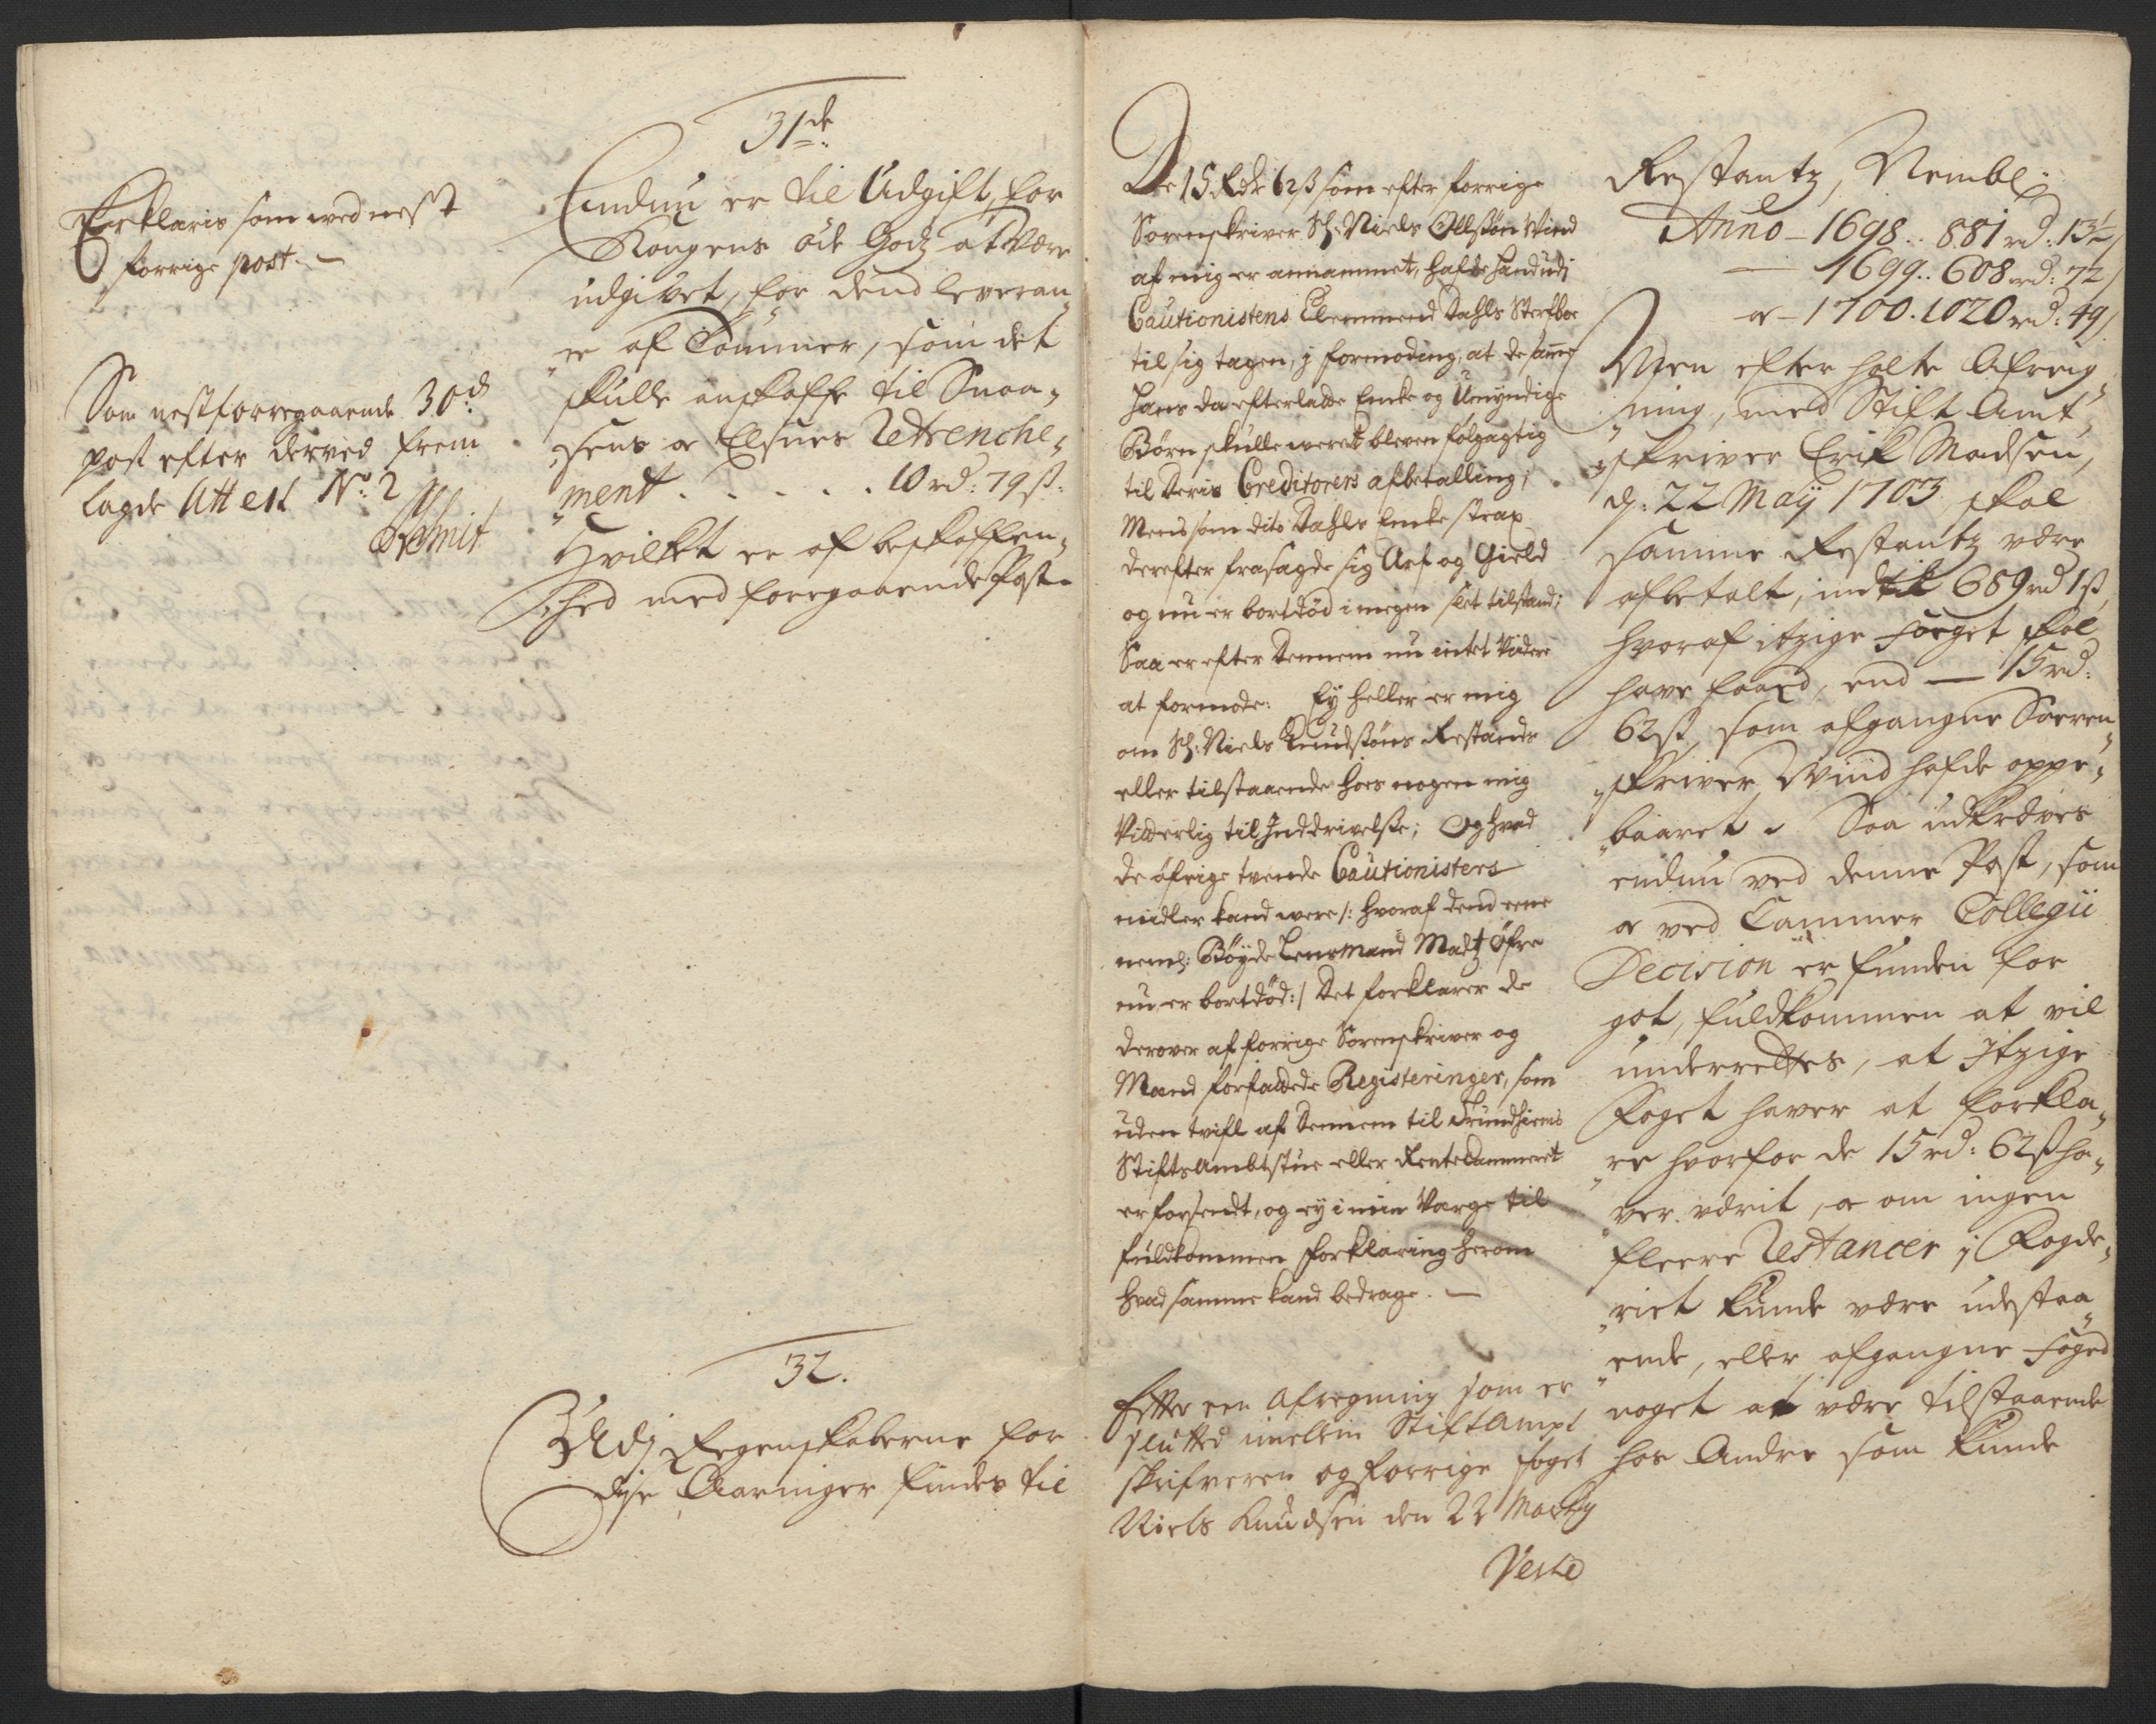 Erklæris som wed nest
forrige post. —
Som nestforregaaende 30de
post efter derved frem
lagde Attest No: 2
Schmit
31de
Endnu er til Udgift for
Kongens öde Godz at være
udgivet, for dend leveran„
„ce af Tömmer, som det
skulle anskaffe til Snaa„
„sens og Elsnes Retrenche„
„ment . . . . . 10 rd: 79 ß:
Hvilket er af beskaffen„
„hed med foregaaende Post.
32.
Udj Regenskaberne for
disse Aaringer findes til
De 15 Rdr 62 ß som efter forrige
Sorenskriver Sl: Niels Ollssøn Wind
af mig er annammet, hafde hand udj
Cautionistens Clemmend Dahls Sterfboe
til sig tagen, j formoding, at de samme
hans da efterladte Encke og Umyndige
Børn skulle weret bleven følgagtig
til deris Creditorers afbetalling;
Mens som dito Dahls Encke strax
derefter frasagde sig Arf og Gield
og nu er bortdød i megen slet tilstand;
Saa er efter dennem nu intet Videre
at formode: Ey heller er mig
om Sl: Niels Knudssøns Restands
eller tilstaaende hoes nogen mig
Vitterlig til Inddrivelse; Og hvad
de øfrige tvende Cautionisters
midler kand were /: hvoraf dend eene
neml: Bøyde Lensmand Maltz Øfre
nu er bortdød :/ Det forklarer de
derover af forrige Sorenskriver og
Mænd forfattede Registeringer, som
uden tvifl af dennem til Trundhiems
StiftsAmbtstue eller RenteCammeret
er forsendt, og ey i min Værge til
fuldkommen forklaring herom
hvad samme kand bedrage. —
Efter een Afregning som er
slutted imellem Stiftampt
skrifveren og forrige foget
Niels Knudsen den 22 Maÿ
Restantz, Nembl:
Anno – 1698 .. 881 rd: 13½
— 1699 .. 608 rd: 72
og – 1700 . 1020 rd: 49
Men efter holte Afreig„
„ning, med Stift Amt„
„skriver Erik Madsen,
d: 22 Maÿ 1703, skal
samme Restantz være
afbetalt, indtil 689 rd 1 ß,
hvoraf itzige Foeget skal
have faaed, end — 15 rd:
62 ß, som afgangne Soeren„
„skriver Wind hafde oppe„
„baaret. Saa udkræves
endnu ved denne Post, som
og ved Cammer Collegii
Decision er funden for
got, fuldkommen at vil
underrettes, at Itzige
Foget haver at forkla„
„re hvorfor de 15 rd: 62 ß ha„
„ver værit, og om ingen
fleere Restancer j Fogde„
„riet kunde være udestaa„
„ende, eller afgangne Foged
noget at være tilstaaende
hos Andre som kunde